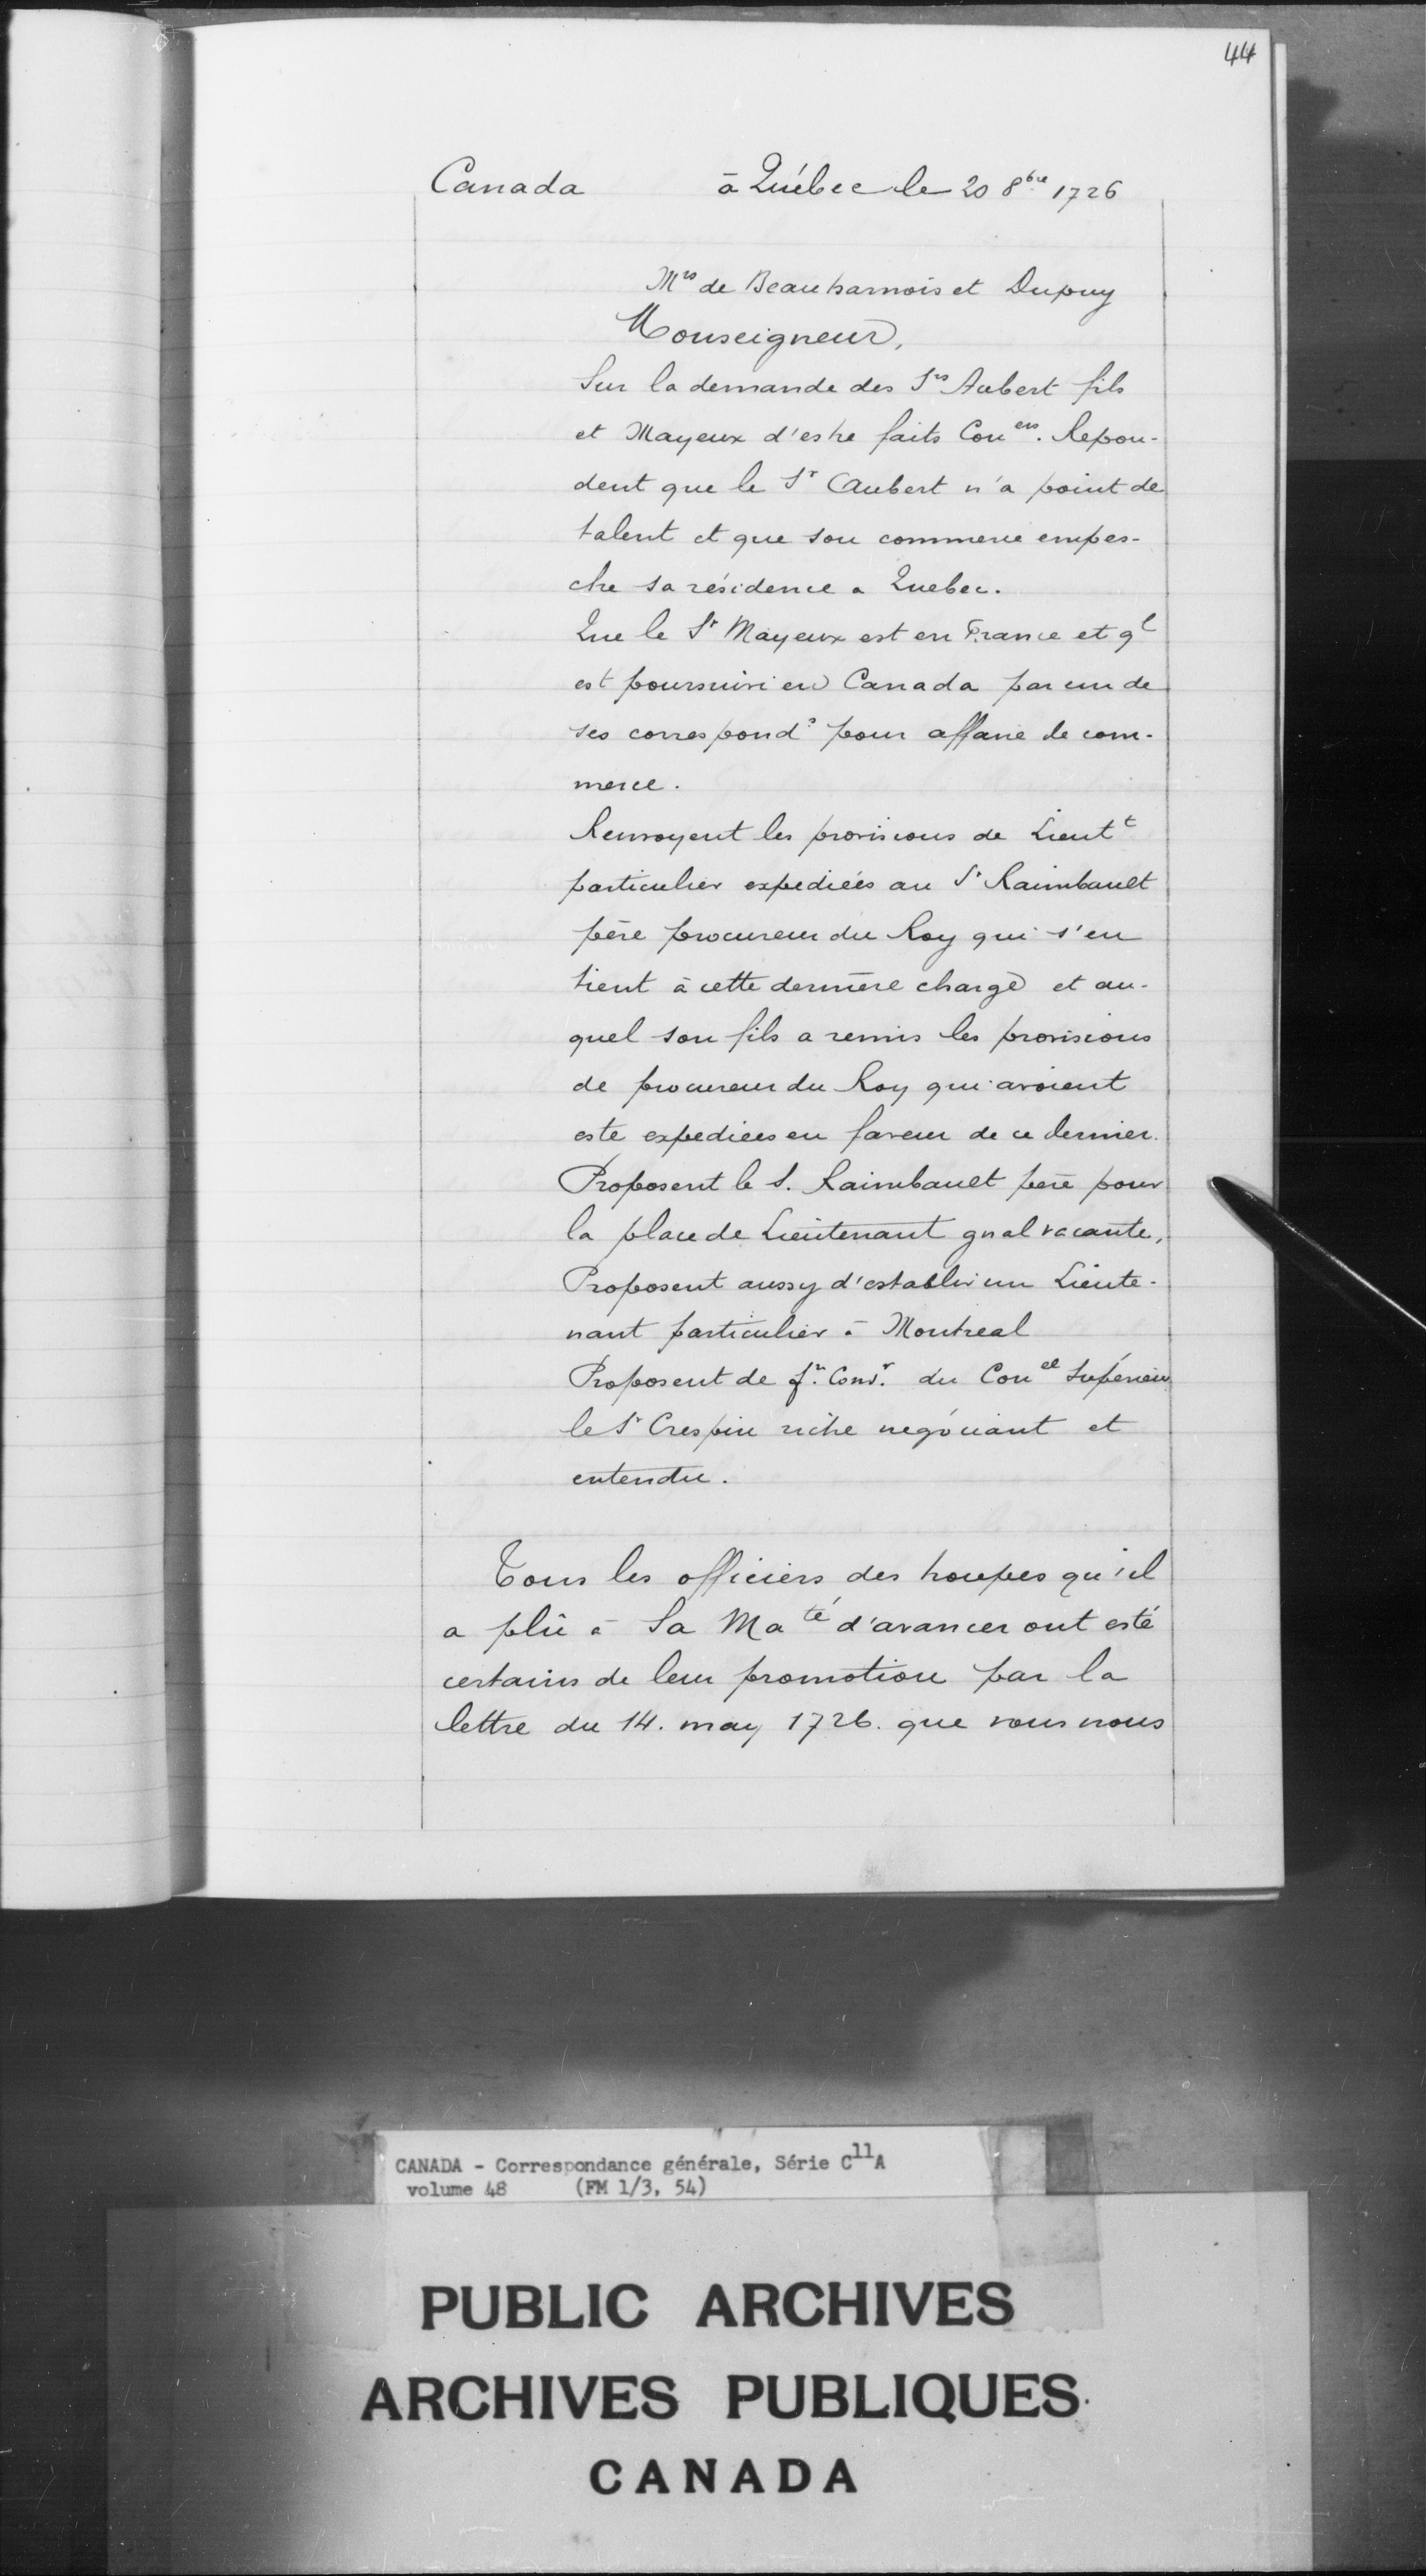 44
Canada à Québec le 20 8bre 1726
Mrs de Beauharnois et Dupuy
Monseigneur,
Sur la demande des Srs Aubert fils
et Mayeux d'estre faits Couers. Repon-
dent que le Sr Aubert n'a point de
talent et que son commerce empes-
che sa résidence a Quebec.
Que le Sr Mayeux est en France et ql
est poursuivi en Canada par un de
ses corresponds pour affaire de com-
merce.
Renvoyent les provisions de Lieutt
particulier expediées au Sr Raimbault
père procureur du Roy qui s'en
tient à cette dernière charge et au-
quel son fils a remis les provisions
de procureur du Roy qui avoient
este expediees en faveur de ce dernier.
Proposent le S. Raimbault père pour
la place de Lieutenant gnal vacante,
Proposent aussy d'establir un Lieute-
nant particulier à Montreal
Proposent de fr. Consr. du Conel Supérieur
le Sr Crespin riche négociant et
entendu.
Tous les officiers des troupes qu'il
a plû à Sa Maté d'avancer ont esté
certains de leur promotion par la
lettre du 14. may 1726. que vous nous
CANADA - Correspondance générale, Série C11A
volume 48 (FM 1/3, 54)
PUBLIC ARCHIVES
ARCHIVES PUBLIQUES
CANADA